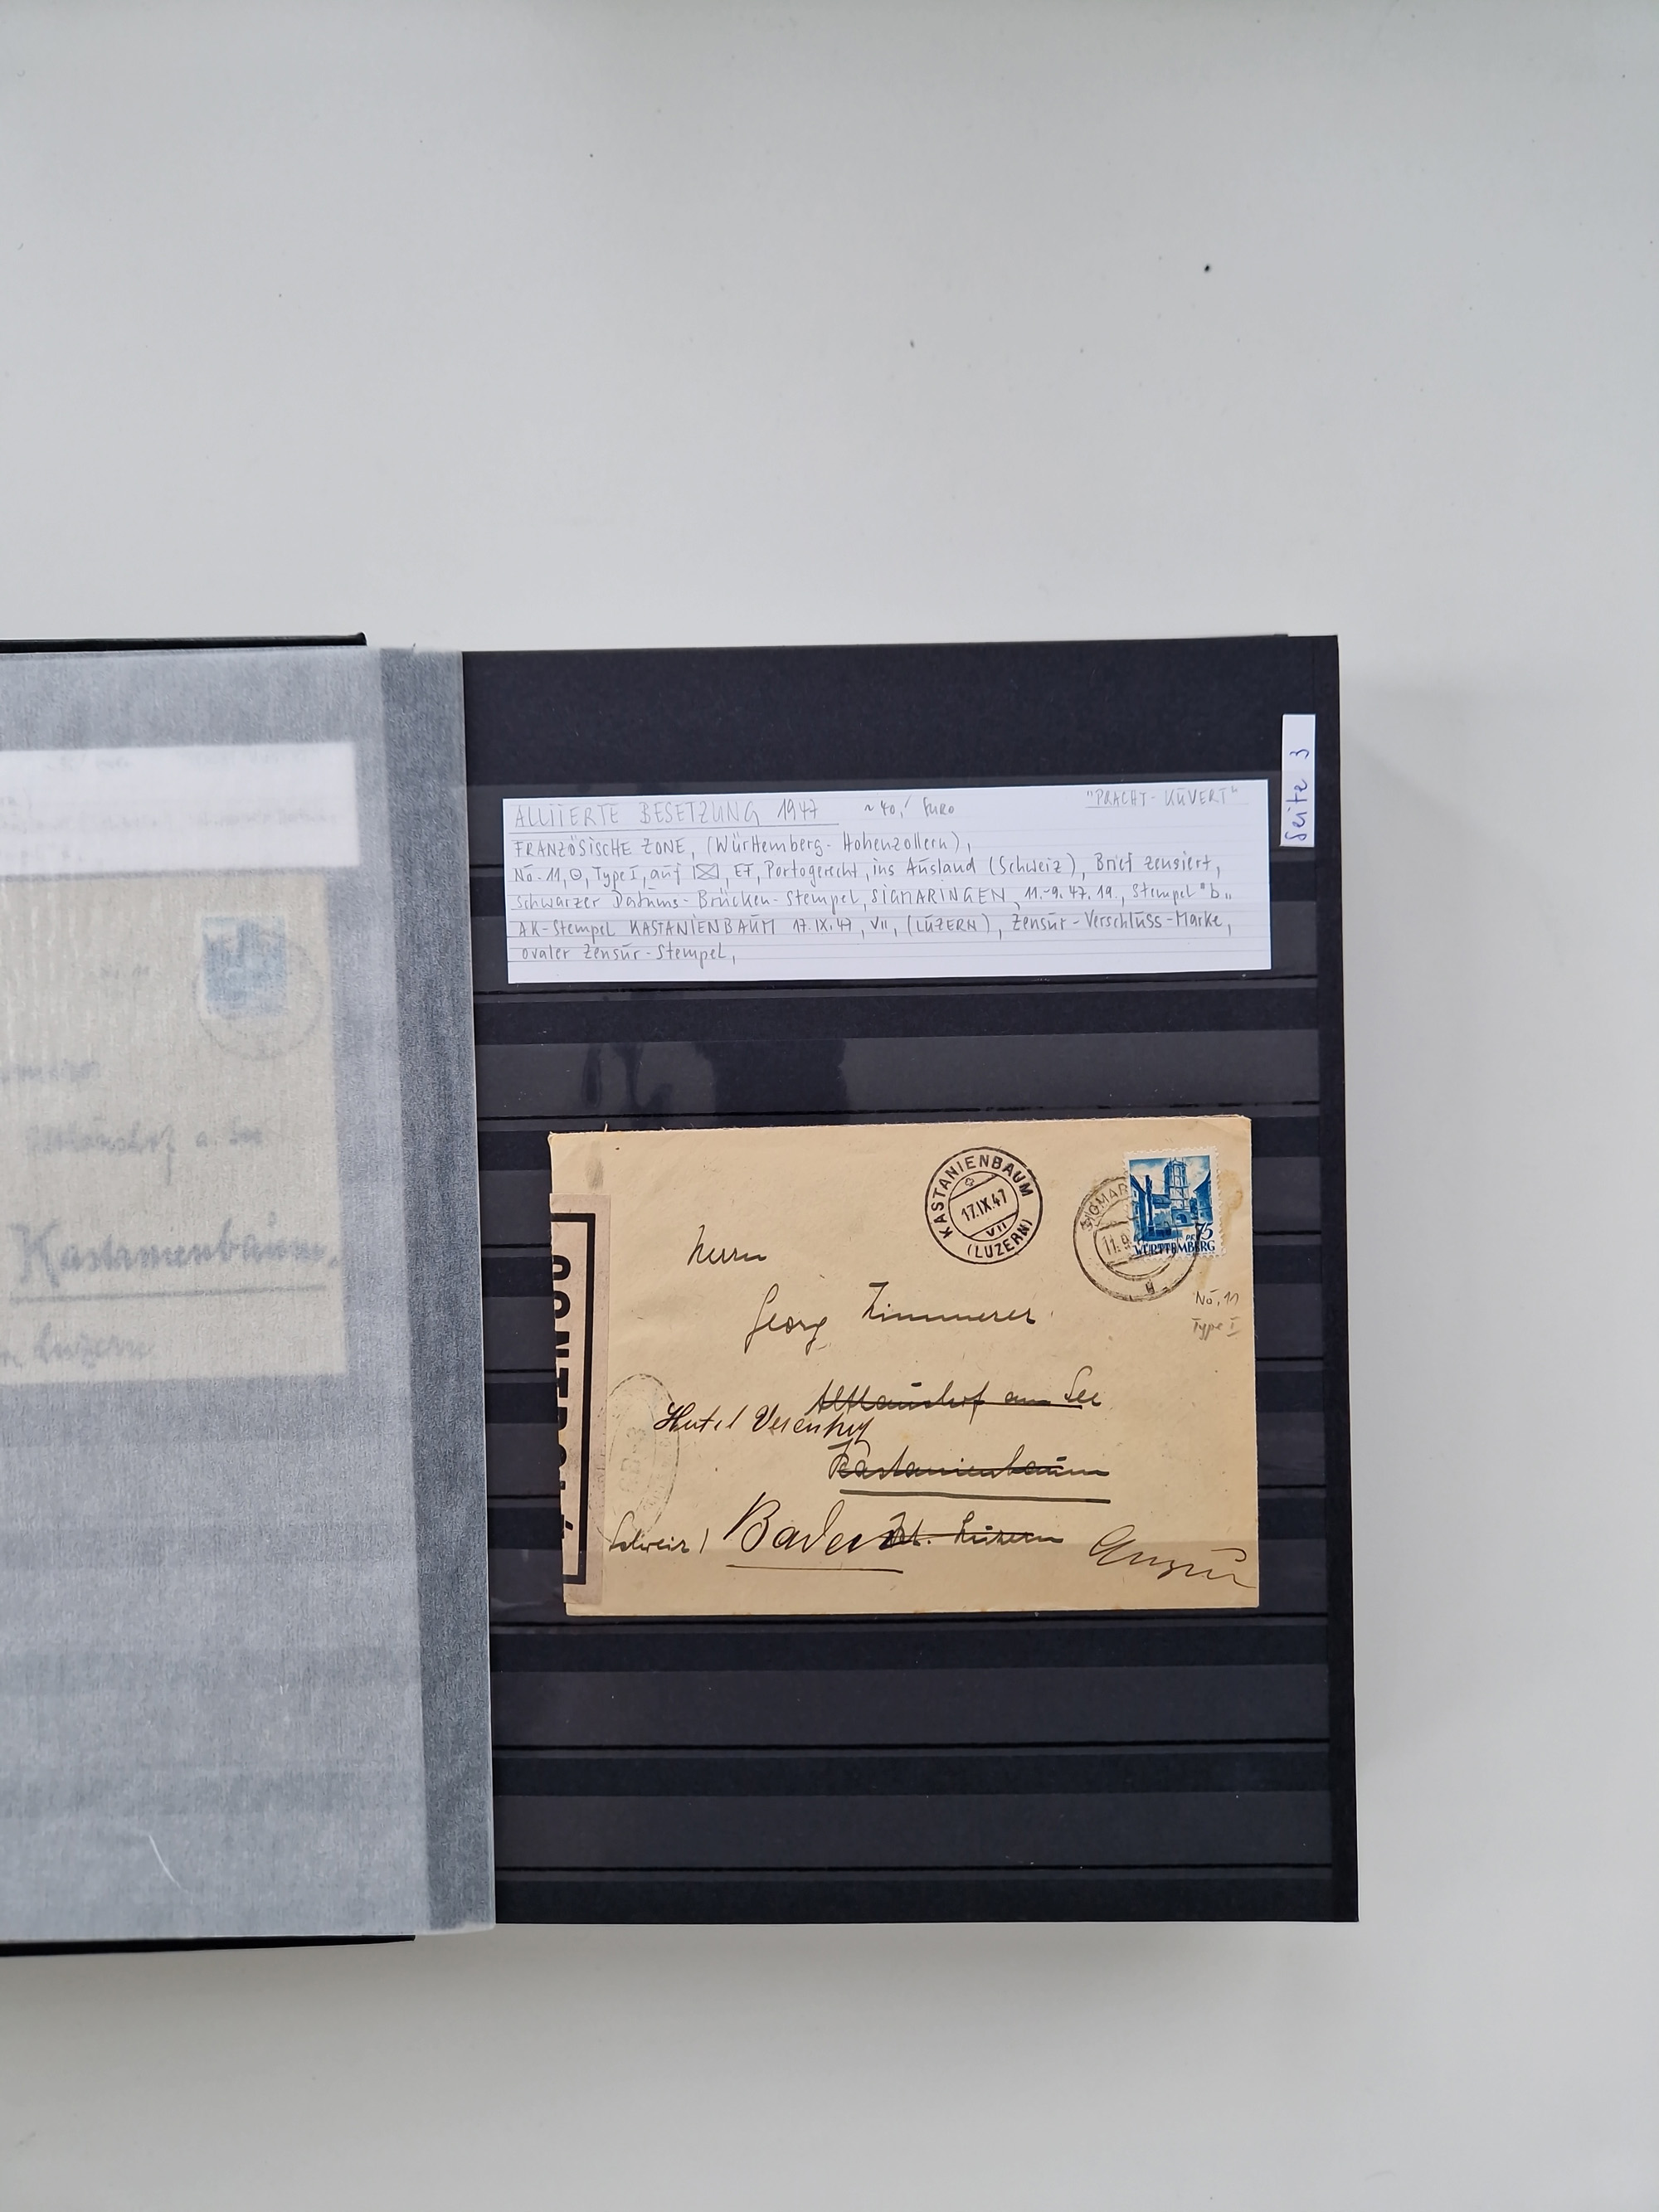 Seite 3
ALLIIERTE BESETZUNG 1947 ~ 40,- Euro "PRACHT-KUVERT"
FRANZÖSISCHE ZONE, (Württemberg-Hohenzollern),
No. 11, ⊙, Type I, auf ✉, EF, Portogerecht, ins Ausland (Schweiz), Brief zensiert,
schwarzer Datums-Brücken-Stempel, SIGMARINGEN, 11.-9.47.19., Stempel "b"
AK-Stempel KASTANIENBAUM 17.IX.47, VII, (LUZERN), Zensur-Verschluss-Marke,
ovaler Zensur-Stempel,
KASTANIENBAUM
17.IX.47
VII
(LUZERN)
SIGMAR
11.9
75
WÜRTTEMBERG
No. 11
Type I
Herrn
Georg Zimmerer
am See
Hotel Verenhof
Kastanienbaum
Schweiz) Baden Luzern
Kastanienbaum.
Luzern